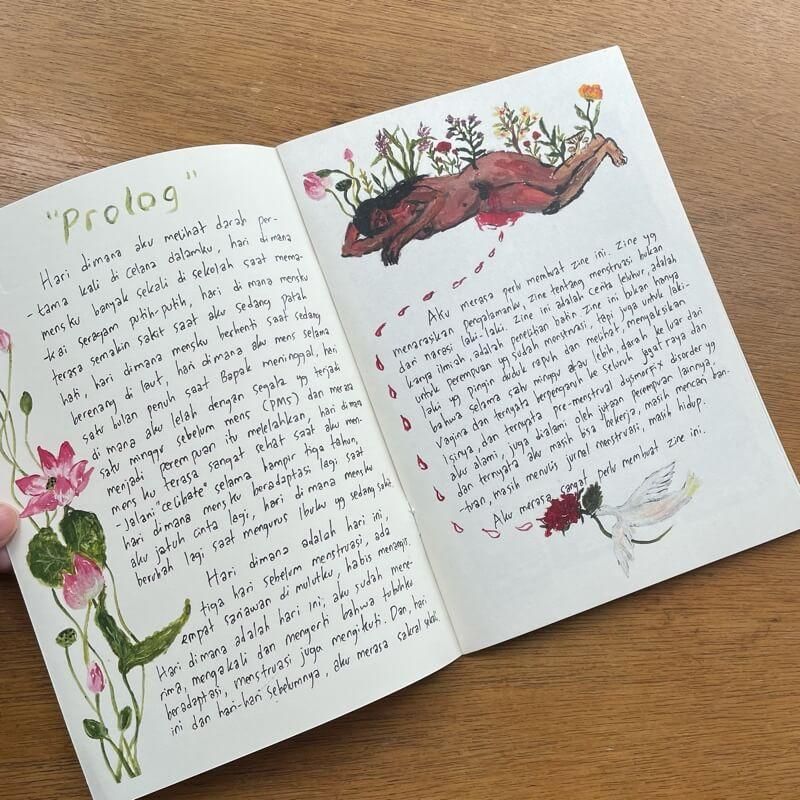 "Prolog"
Hari dimana aku melihat darah per-
-tama kali di celana dalamku, hari dimana
mensku banyak sekali di sekolah saat mema-
-kai seragam putih-putih, hari dimana mensku
terasa semakin sakit saat aku sedang patah
hati, hari dimana mensku berhenti saat sedang
berenang di laut, hari dimana aku mens selama
satu bulan penuh saat Bapak meninggal, hari
di mana aku lelah dengan segala yg terjadi
satu minggu sebelum mens (PMS) dan merasa
menjadi perempuan itu melelahkan, hari dimana
mensku terasa sangat sehat saat aku men-
-jalani "celibate" selama hampir tiga tahun,
hari dimana mensku beradaptasi lagi saat
aku jatuh cinta lagi, hari dimana mensku
berubah lagi saat mengurus Ibuku yg sedang sakit.
Hari dimana adalah hari ini,
tiga hari sebelum menstruasi, ada
empat sariawan di mulutku, habis menangis.
Hari dimana adalah hari ini, aku sudah mene-
rima, mengakali dan mengerti bahwa tubuhku
beradaptasi, menstruasi juga mengikuti. Dan, hari
ini dan hari-hari sebelumnya, aku merasa sakral sekali.
Aku merasa perlu membuat zine ini. Zine yg
menarasikan pengalamanku, zine tentang menstruasi bukan
dari narasi laki-laki. Zine ini adalah cerita leluhur, adalah
karya ilmiah, adalah penelitian batin. Zine ini bukan hanya
untuk perempuan yg sudah menstruasi, tapi juga untuk laki-
laki yg pingin duduk rapuh dan melihat, menyaksikan
bahwa selama satu minggu atau lebih, darah keluar dari
vagina dan ternyata berpengaruh ke seluruh jagat raya dan
Isinya, dan ternyata pre-menstrual dusmorfix disorder yg
aku alami, juga dialami oleh jutaan perempuan lainnya
dan ternyata aku masih bisa bekerja, masih mencari ban-
-tuan, masih menulis jurnal menstruasi, masih hidup.
Aku merasa sangat perlu membuat zine ini.